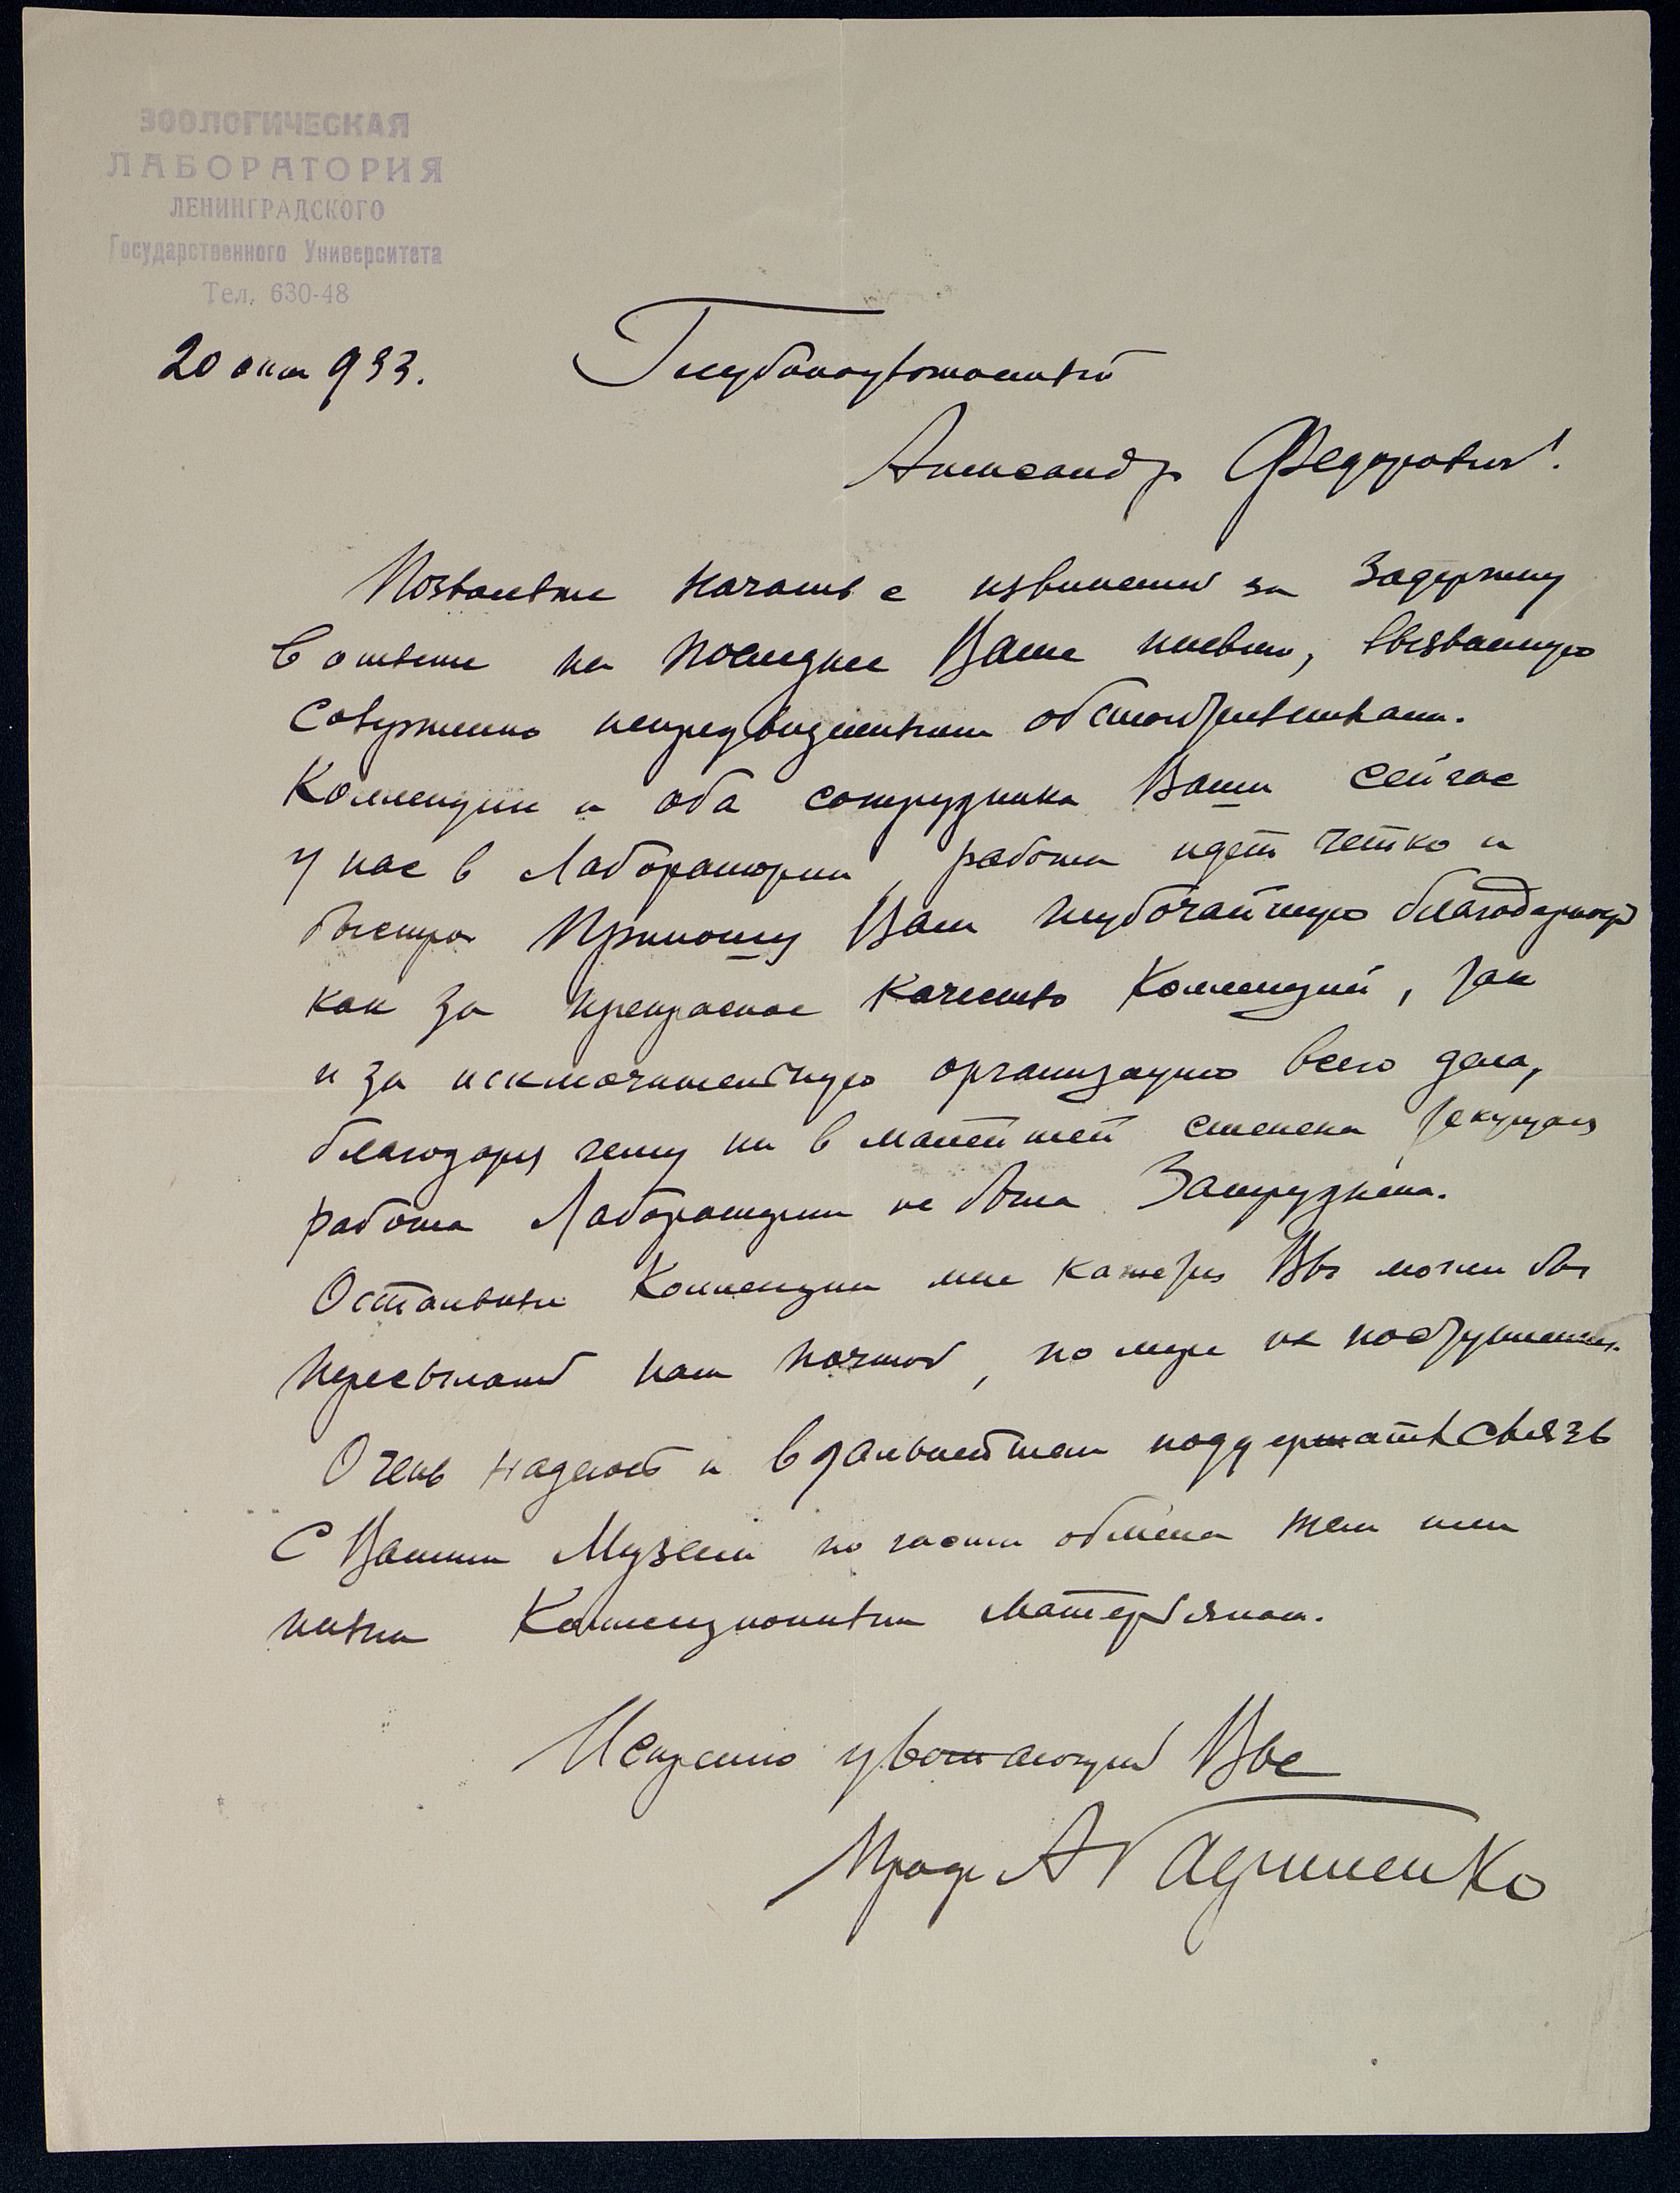 ЗООЛОГИЧЕСКАЯ
ЛАБОРАТОРИЯ
ЛЕНИНГРАДСКОГО
Государственного Университета
Тел. 630-48
20 окт 933.
Глубокоуважаемый
Александр Федорович!
Позвольте начать с извинений за задержку
в ответе на последнее Ваше письмо, вызванную
совершенно непредвиденными обстоятельствами.
Коллекции и оба сотрудника Ваши сейчас
у нас в Лаборатории, работа идет четко и
быстро. Приношу Вам глубочайшую благодарность
как за прекрасное качество коллекций, так
и за исключительную организацию всего дела,
благодаря чему ни в малейшей степени текущая
работа Лаборатории не была затруднена.
Остальные коллекции мне кажется Вы могли бы
пересылать нам почтой, по мере их поступления.
Очень надеюсь и в дальнейшем поддержать связь
с Вашим Музеем по части обмена тем или
иным коллекционным матерьялом.
Искренно уважающий Вас
Проф А